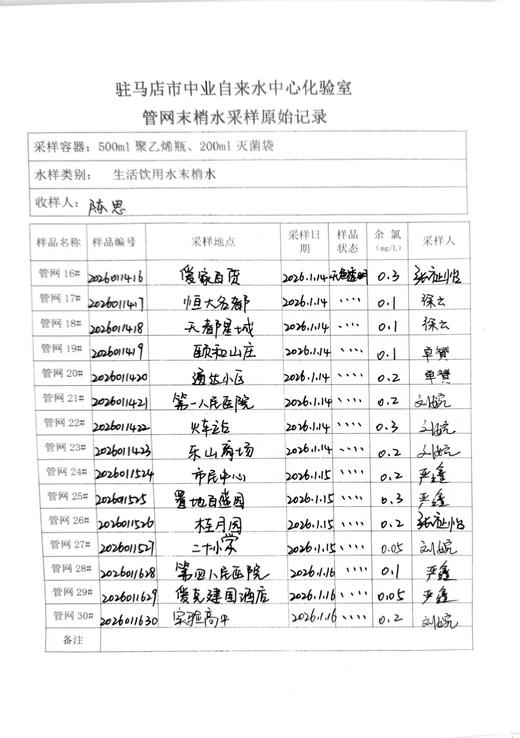 驻马店市中业自来水中心化验室
管网末梢水采样原始记录
采样容器：500ml 聚乙烯瓶、200ml 灭菌袋
水样类别： 生活饮用水末梢水
收样人：陈思
样品名称 样品编号 采样地点 采样日期 样品状态 余氯(mg/L) 采样人
管网 16# 2026011416 爱家百货 2026.1.14 无色透明 0.3
管网 17# 2026011417 恒大名都 2026.1.14 、、、、 0.1 徐云
管网 18# 2026011418 天都星城 2026.1.14 、、、、 0.1 徐云
管网 19# 2026011419 颐和山庄 2026.1.14 、、、、 0.1 单赞
管网 20# 2026011420 通达小区 2026.1.14 、、、、 0.2 单赞
管网 21# 2026011421 第一人民医院 2026.1.14 、、、、 0.2 刘婉
管网 22# 2026011422 火车站 2026.1.14 、、、、 0.3 刘婉
管网 23# 2026011423 乐山商场 2026.1.14 、、、、 0.2 刘婉
管网 24# 2026011524 市民中心 2026.1.15 、、、、 0.2 严鑫
管网 25# 2026011525 置地百盛园 2026.1.15 、、、、 0.3 严鑫
管网 26# 2026011526 桂月园 2026.1.15 、、、、 0.2
管网 27# 2026011527 二十小学 2026.1.15 、、、、 0.05 刘婉
管网 28# 2026011628 第四人民医院 2026.1.16 、、、、 0.1 严鑫
管网 29# 2026011629 爱克建国酒店 2026.1.16 、、、、 0.05 严鑫
管网 30# 2026011630 实验高中 2026.1.16 、、、、 0.2 刘婉
备注